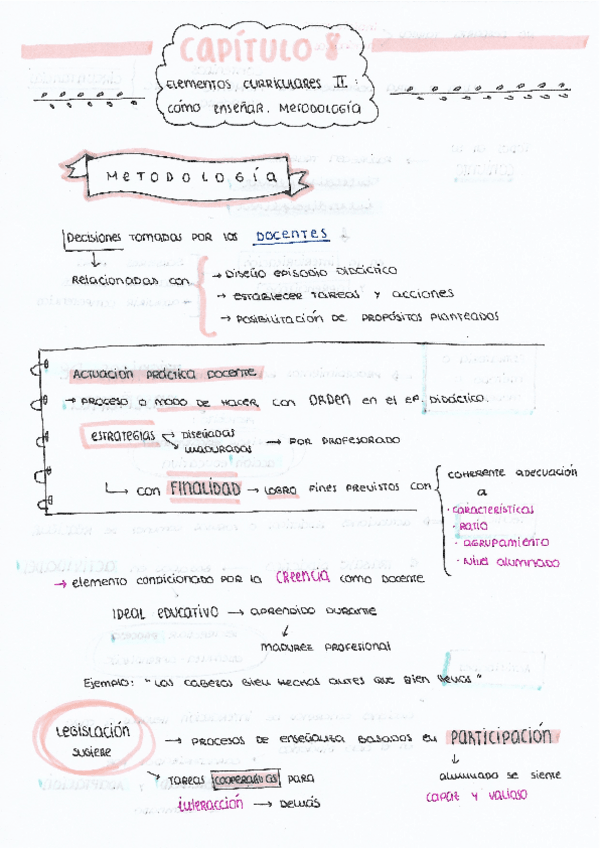 CAPÍTULO 8
ELEMENTOS CURRICULARES II:
CÓMO ENSEÑAR. METODOLOGÍA
METODOLOGÍA
Decisiones TOMADAS POR LOS DOCENTES
Relacionadas con
→ DISEÑO EPISODIO DIDÁCTICO
→ ESTABLECER TAREAS Y ACCIONES
→ POSIBILITACIÓN DE PROPÓSITOS PLANTEADOS
ACTUACIÓN PRÁCTICA DOCENTE
→ PROCESO O MODO DE HACER, CON ORDEN en el EP. DIDÁCTICO.
ESTRATEGIAS DISEÑADAS MADURADAS → POR PROFESORADO
CON FINALIDAD → LOGRO FINES PREVISTOS CON
COHERENTE ADECUACIÓN
A
· CARACTERÍSTICAS
· RATIO
· AGRUPAMIENTO
· Nivel alumnado
→ elemento CONDICIONADO POR LA CREENCIA COMO DOCENTE
IDEAL EDUCATIVO → APRENDIDO DURANTE
↓
MADUREZ PROFESIONAL
EJEMPLO: "LAS CABEZAS BIEN HECHAS ANTES QUE BIEN LLENAS"
LEGISLACIÓN
SUGIERE
→ PROCESOS DE ENSEÑANZA BASADOS EN PARTICIPACIÓN
↓
ALUMNADO SE SIENTE
CAPAZ Y VALIOSO
TAREAS COOPERATIVAS PARA
INTERACCIÓN → DEMÁS